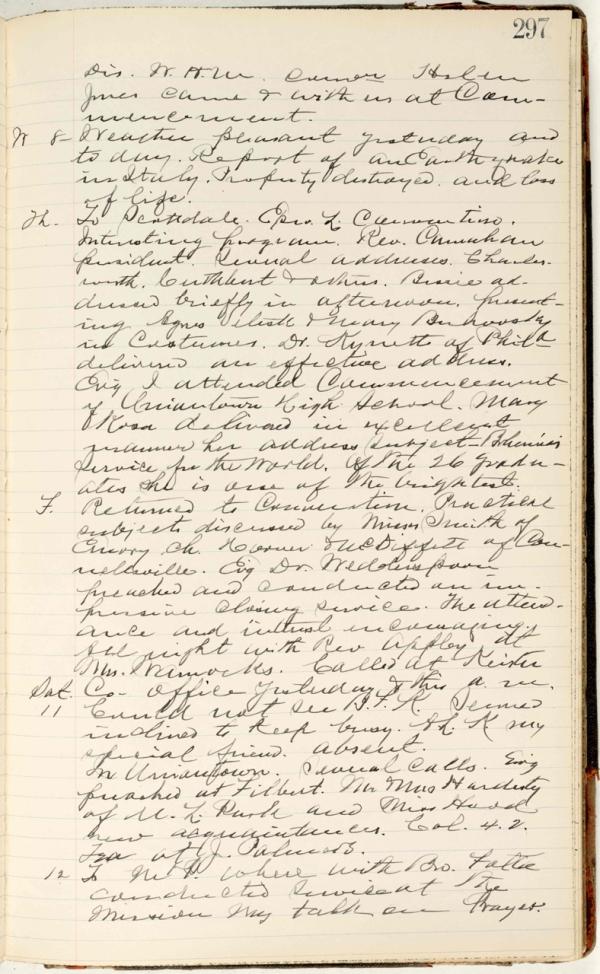 297
Dis. W. H. M. Conven Helen
Jones came & with us at Com-
mencement.
W 8- Weather pleasant yesterday and
to day. Report of an Earthquake
in Italy. Property destroyed and loss
of life.
Th. To Scottdale. Epw. L Convention.
Interesting program. Rev. Carnahan
president. Several addresses. Charles-
worth. Cuthbert & others. Bessie ad-
dressed briefly in afternoon, present-
ing Agnes & Mary
in Costumes. Dr. Kynett of Phila
delivered an effective address.
Evg I attended Commencement
of Uniontown High School. Mary
Rosa delivered in excellent
manner her address subject - Bohemia's
service for the World. Of the 26 gradu-
ates she is one of the brightest.
F. Returned to Convention. Practical
subjects discussed by Misses Smith of
Emory Ch. Horner & McDiffett of Con-
nellsville. Evg Dr. Wedderspoon
preached and conducted an im-
pressive closing service. The attend-
ance and interest encouraging.
All night with Rev Appley at
Mrs. Warnocks. Called at Keister
Sat. Co- office yesterday & this a. m.
11 Could not see B. F. K seemed
inclined to keep busy. Ah. K my
special friend absent.
In Uniontown. Several calls. Evg
preached at Filbert. Mr Mrs Hardesty
of U. L. Park and Miss Hood
new acquaintances. Col. 4. 2.
Tea at J. Palmers.
12 To Mt P. where with Bro.
conducted service at the
Mission My talk on Prayer.